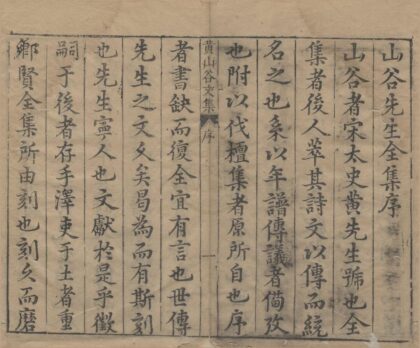 山谷先生全集序
山谷者宋太史黄先生號也全
集者後人萃其詩文以傳而統
名之也系以年譜傳議者俻攷
也附以伐檀集者原所自也序
黄山谷文集 序
者書缺而復全宜有言也世傳
先生之文久矣曷為而有斯刻
也先生寧人也文獻於是乎徵
嗣于後者存手澤吏于土者重
鄉賢全集所由刻也刻久而磨